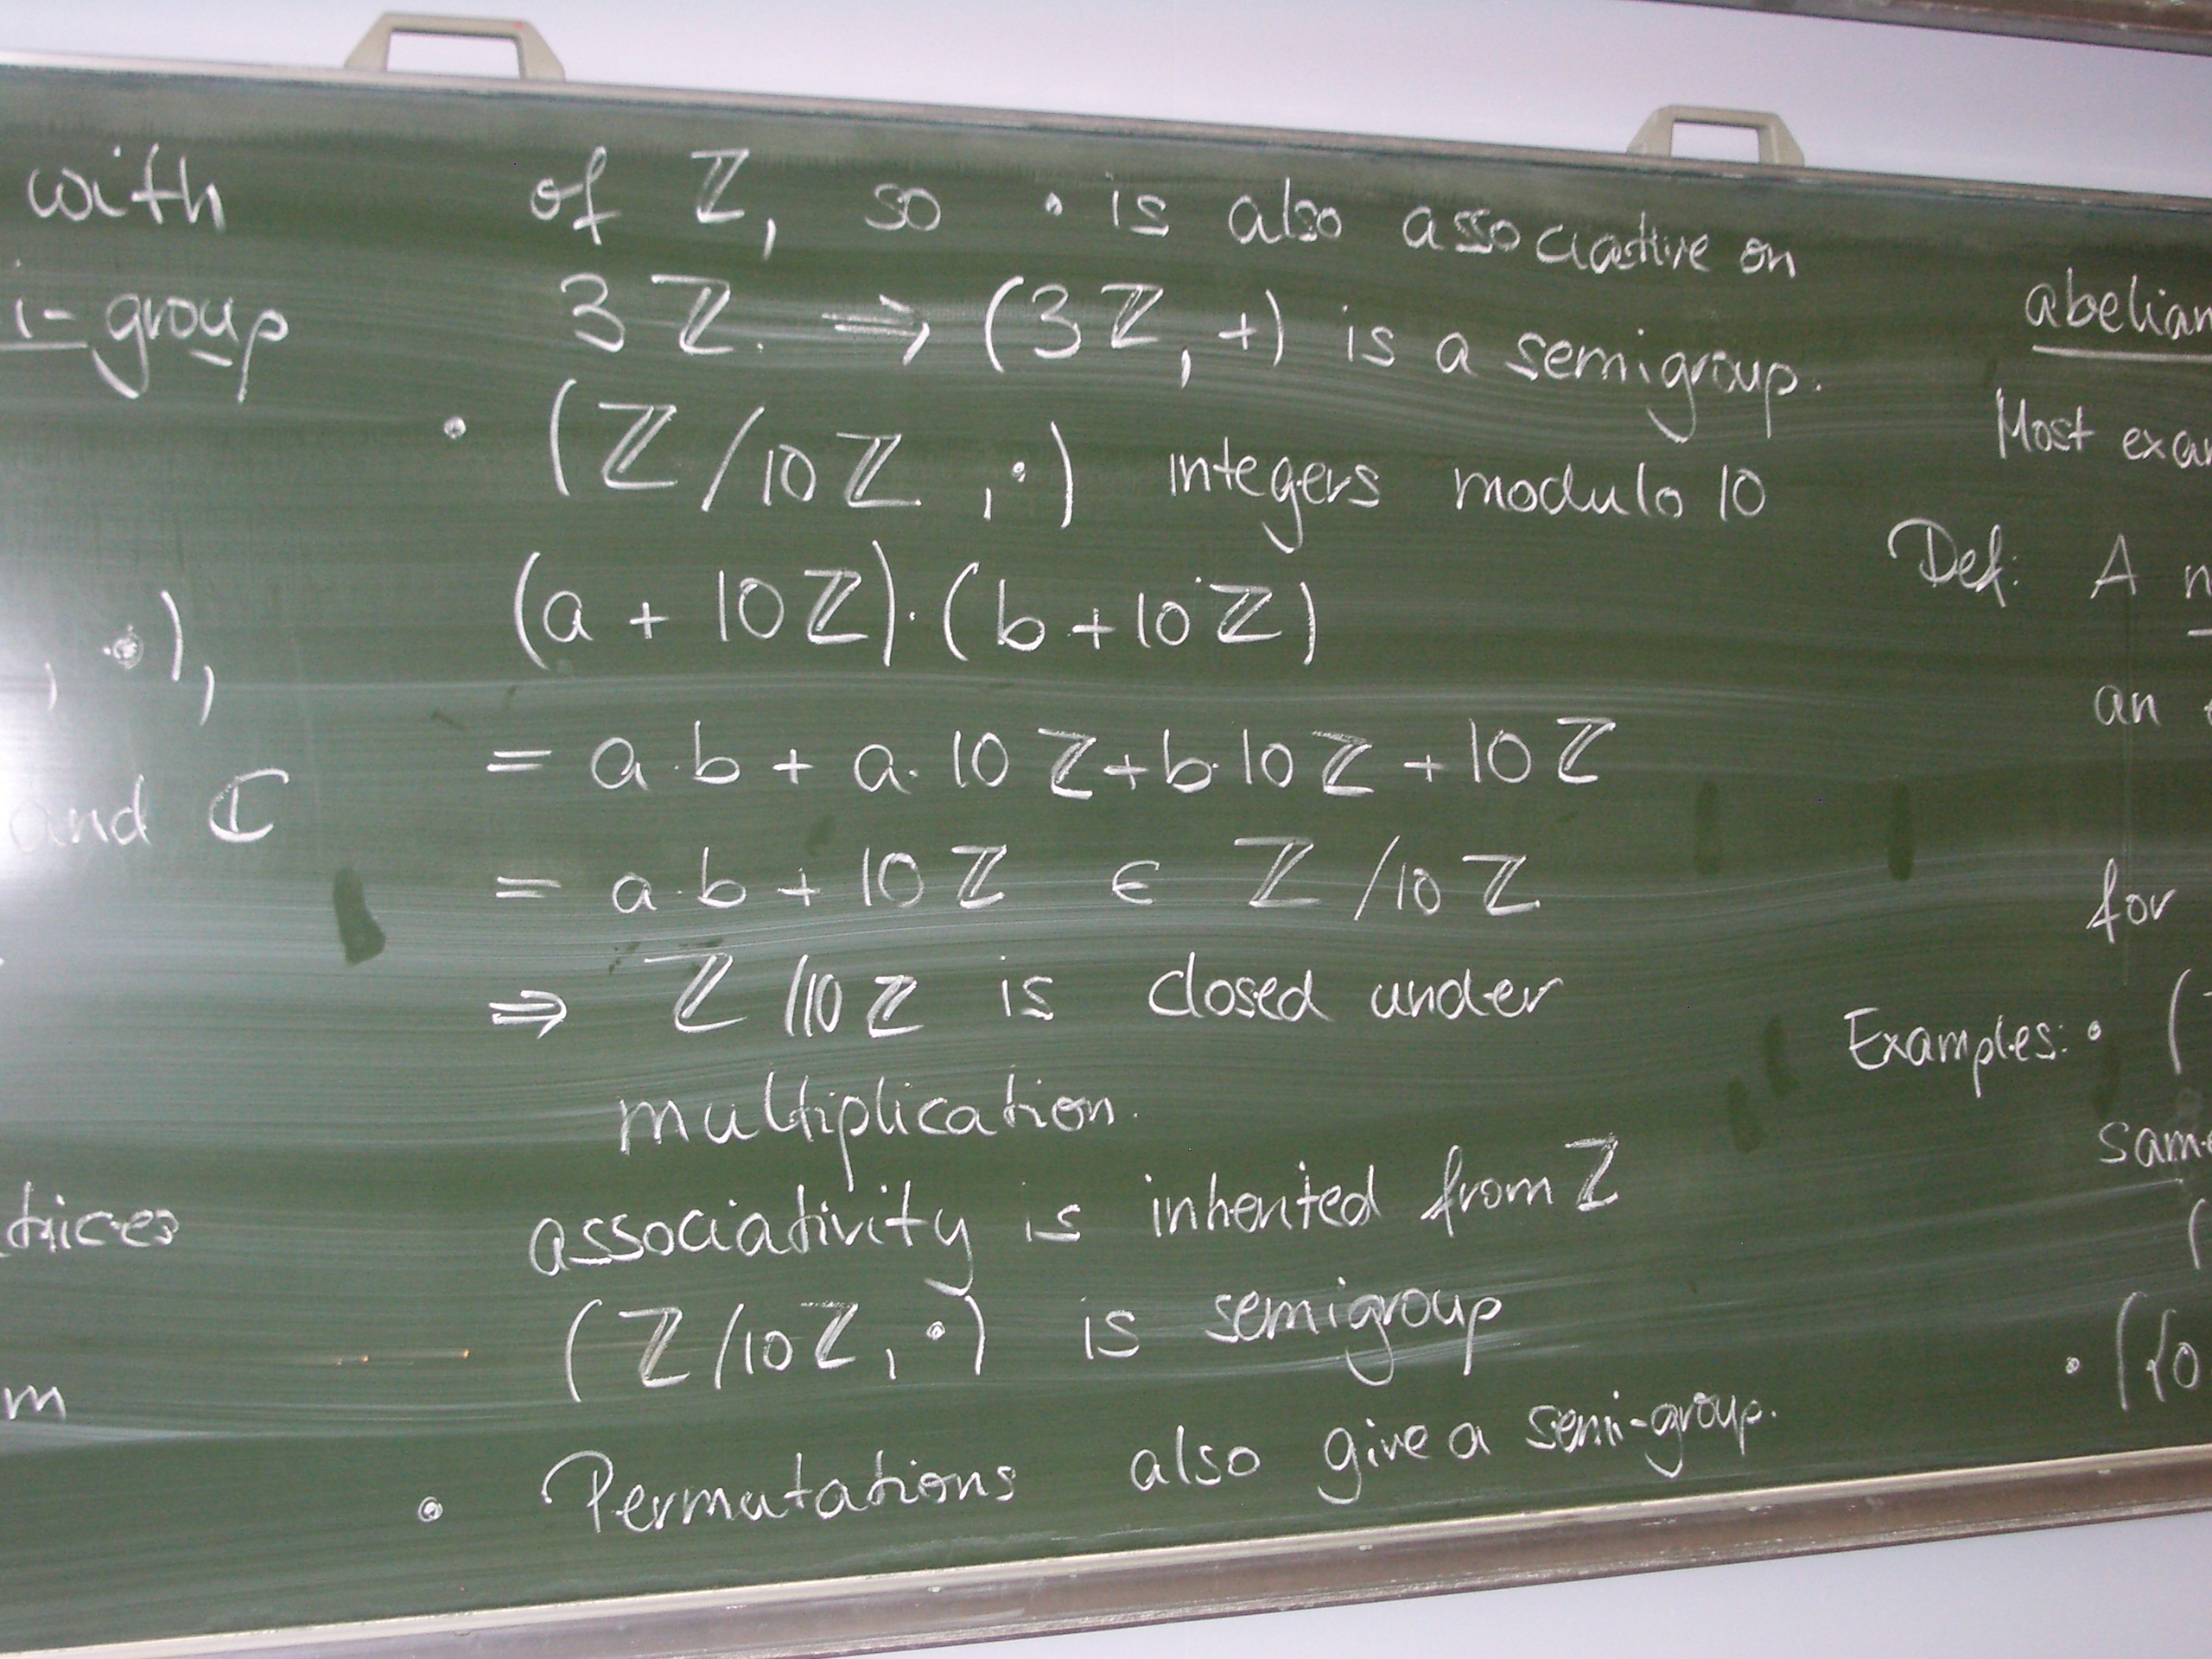 with
i-group
, •),
and ℂ
trices
m
of ℤ, so • is also associative on
3ℤ. ⇒ (3ℤ, +) is a semigroup.
• (ℤ/10ℤ, •) integers modulo 10
(a + 10ℤ)·(b + 10ℤ)
= a·b + a·10ℤ + b·10ℤ + 10ℤ
= a·b + 10ℤ ∈ ℤ/10ℤ
⇒ ℤ/10ℤ is closed under
multiplication.
associativity is inherited from ℤ
(ℤ/10ℤ, •) is semigroup
• Permutations also give a semi-group.
abelian
Most exam
Def: A n
an
for
Examples: • (
same
(
• ({0